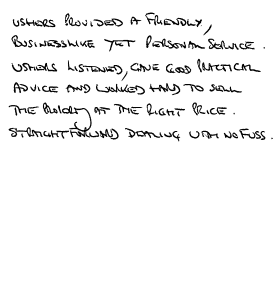 USHERS PROVIDED A FRIENDLY,
BUSINESSLIKE YET PERSONAL SERVICE.
USHERS LISTENED, GAVE GOOD PRACTICAL
ADVICE AND WORKED HARD TO SELL
THE PROPERTY AT THE RIGHT PRICE.
STRAIGHTFORWARD DEALING WITH NO FUSS.